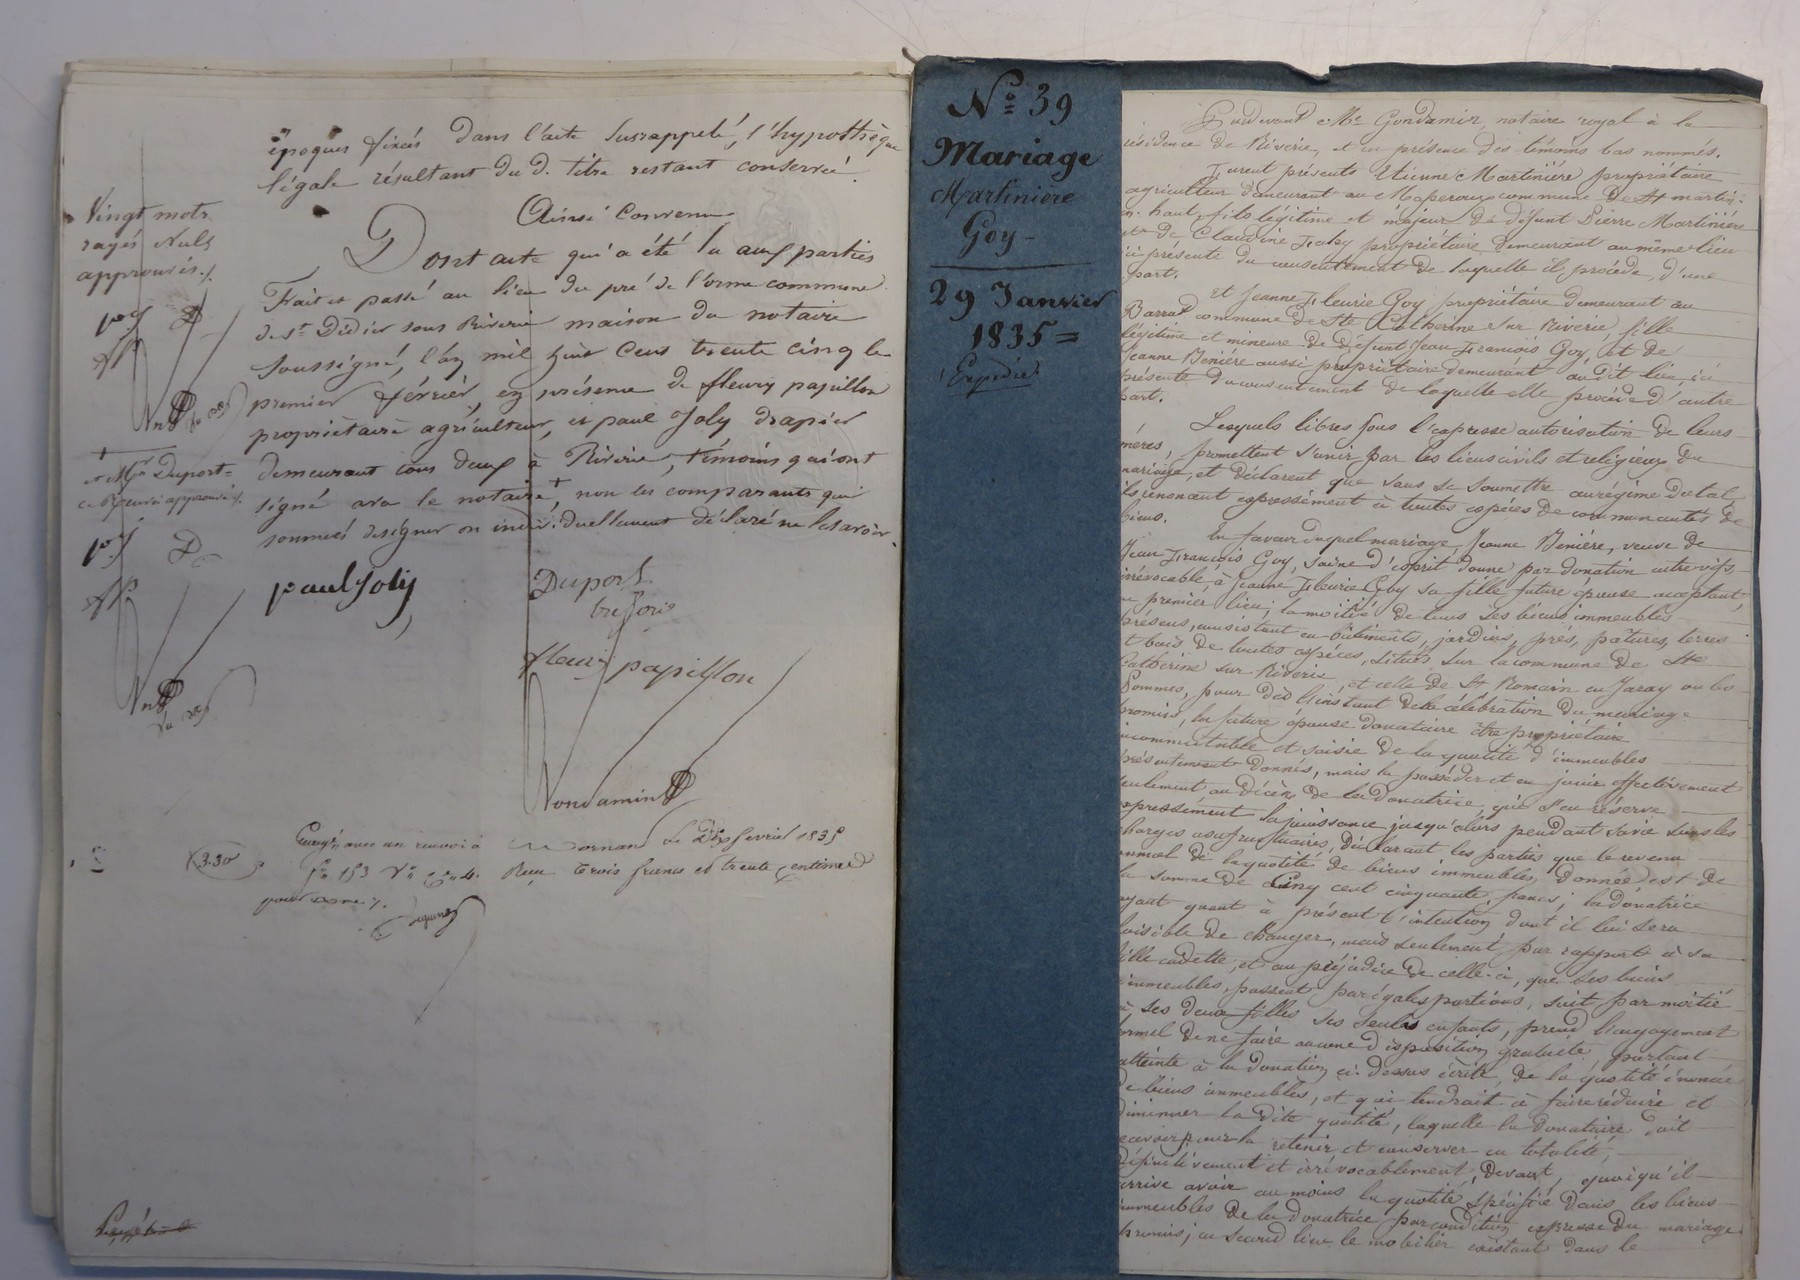 époques fixées dans l'acte susrappelé, l'hypothèque
légale résultant du d. titre restant conservée.
Ainsi Convenu
Dont acte qui a été lu aux parties
Fait et passé au lieu du pré de l'orme commune
de St Didier sous Riverie maison du notaire
soussigné, l'an mil huit cent trente cinq le
premier février, en présence de fleury papillon
propriétaire agriculteur, et paul Joly drapier
demeurant tous deux à Riverie, témoins qui ont
signé avec le notaire +, non les comparants qui
sommés de signer ont individuellement déclaré ne le savoir.
Vingt mots
rayés Nuls
approuvés ./.
+ et Mr Duport
approuvé ./.
paul Joly
Duport
fleuri papillon
Gondamin
Enreg. avec un renvoi à Mornant le Dix fevrier 1835
fo 153 Vo Reçu trois francs et trente centimes
(3.30)
No 39
Mariage
Martinière
Goy
29 Janvier
1835 =
Expédié
Pardevant Me Gondamin, notaire royal à la
résidence de Riverie, et en présence des témoins bas nommés.
Furent présents Etienne Martinière propriétaire
agriculteur demeurant au commune de St martin-
en-haut, fils légitime et majeur de défunt Pierre Martinière
et de Claudine propriétaire demeurant au même lieu
ici présente du consentement de laquelle il procède, d'une
part.
Et Jeanne Fleurie Goy propriétaire demeurant au
Barrat commune de Ste Catherine sur Riverie, fille
légitime et mineure de défunt Jean François Goy, et de
Jeanne Benière aussi propriétaire demeurant au dit lieu, ici
présente du consentement de laquelle elle procède d'autre
part.
Lesquels libres sous l'expresse autorisation de leurs
mères, promettent s'unir par les liens civils et religieux du
mariage, et déclarent que sans se soumettre au régime dotal,
ils renoncent expressément à toutes espèces de communautés de
biens.
En faveur duquel mariage, Jeanne Benière, veuve de
Jean François Goy, saine d'esprit donne par donation entrevifs,
irrévocable à Jeanne Fleurie Goy sa fille future épouse acceptant,
en premier lieu, la moitié de tous ses biens immeubles
présens, consistant en bâtiments, jardins, prés, pâtures, terres
et bois de toutes espèces, situés sur la commune de Ste
Catherine sur Riverie, et celle de St Romain en Jaray ou les
Pommes, pour dès l'instant de la célébration du mariage
promis, la future épouse donataire être propriétaire
incommutable et saisie de la quotité d'immeubles
présentement donnés, mais la posséder et en jouir effectivement
seulement au décès de la donatrice, qui s'en réserve
expressément la jouissance jusqu'alors pendant sa vie sous les
charges usufruituaires, déclarant les parties que le revenu
annuel de la quotité de biens immeubles donnée est de
la somme de Cinq cent cinquante francs; la donatrice
ayant quant à présent l'intention dont il lui sera
loisible de changer, mais seulement par rapport à sa
fille cadette, et au préjudice de celle-ci, que ses biens
immeubles, passent par égales portions, soit par moitié
à ses deux filles ses seuls enfants, prend l'engagement
formel de ne faire aucune disposition gratuite, portant
atteinte à la donation ci-dessus écrite, de la quotité énoncée
de biens immeubles, et qui tendrait à faire réduire et
diminuer la dite quotité, laquelle la donataire doit
recevoir pour la retenir et conserver en totalité,
définitivement et irrévocablement, devant, quoiqu'il
arrive avoir au moins la quotité spécifiée dans les biens
immeubles de la donatrice par condition expresse du mariage
promis; en second lieu le mobilier existant dans le